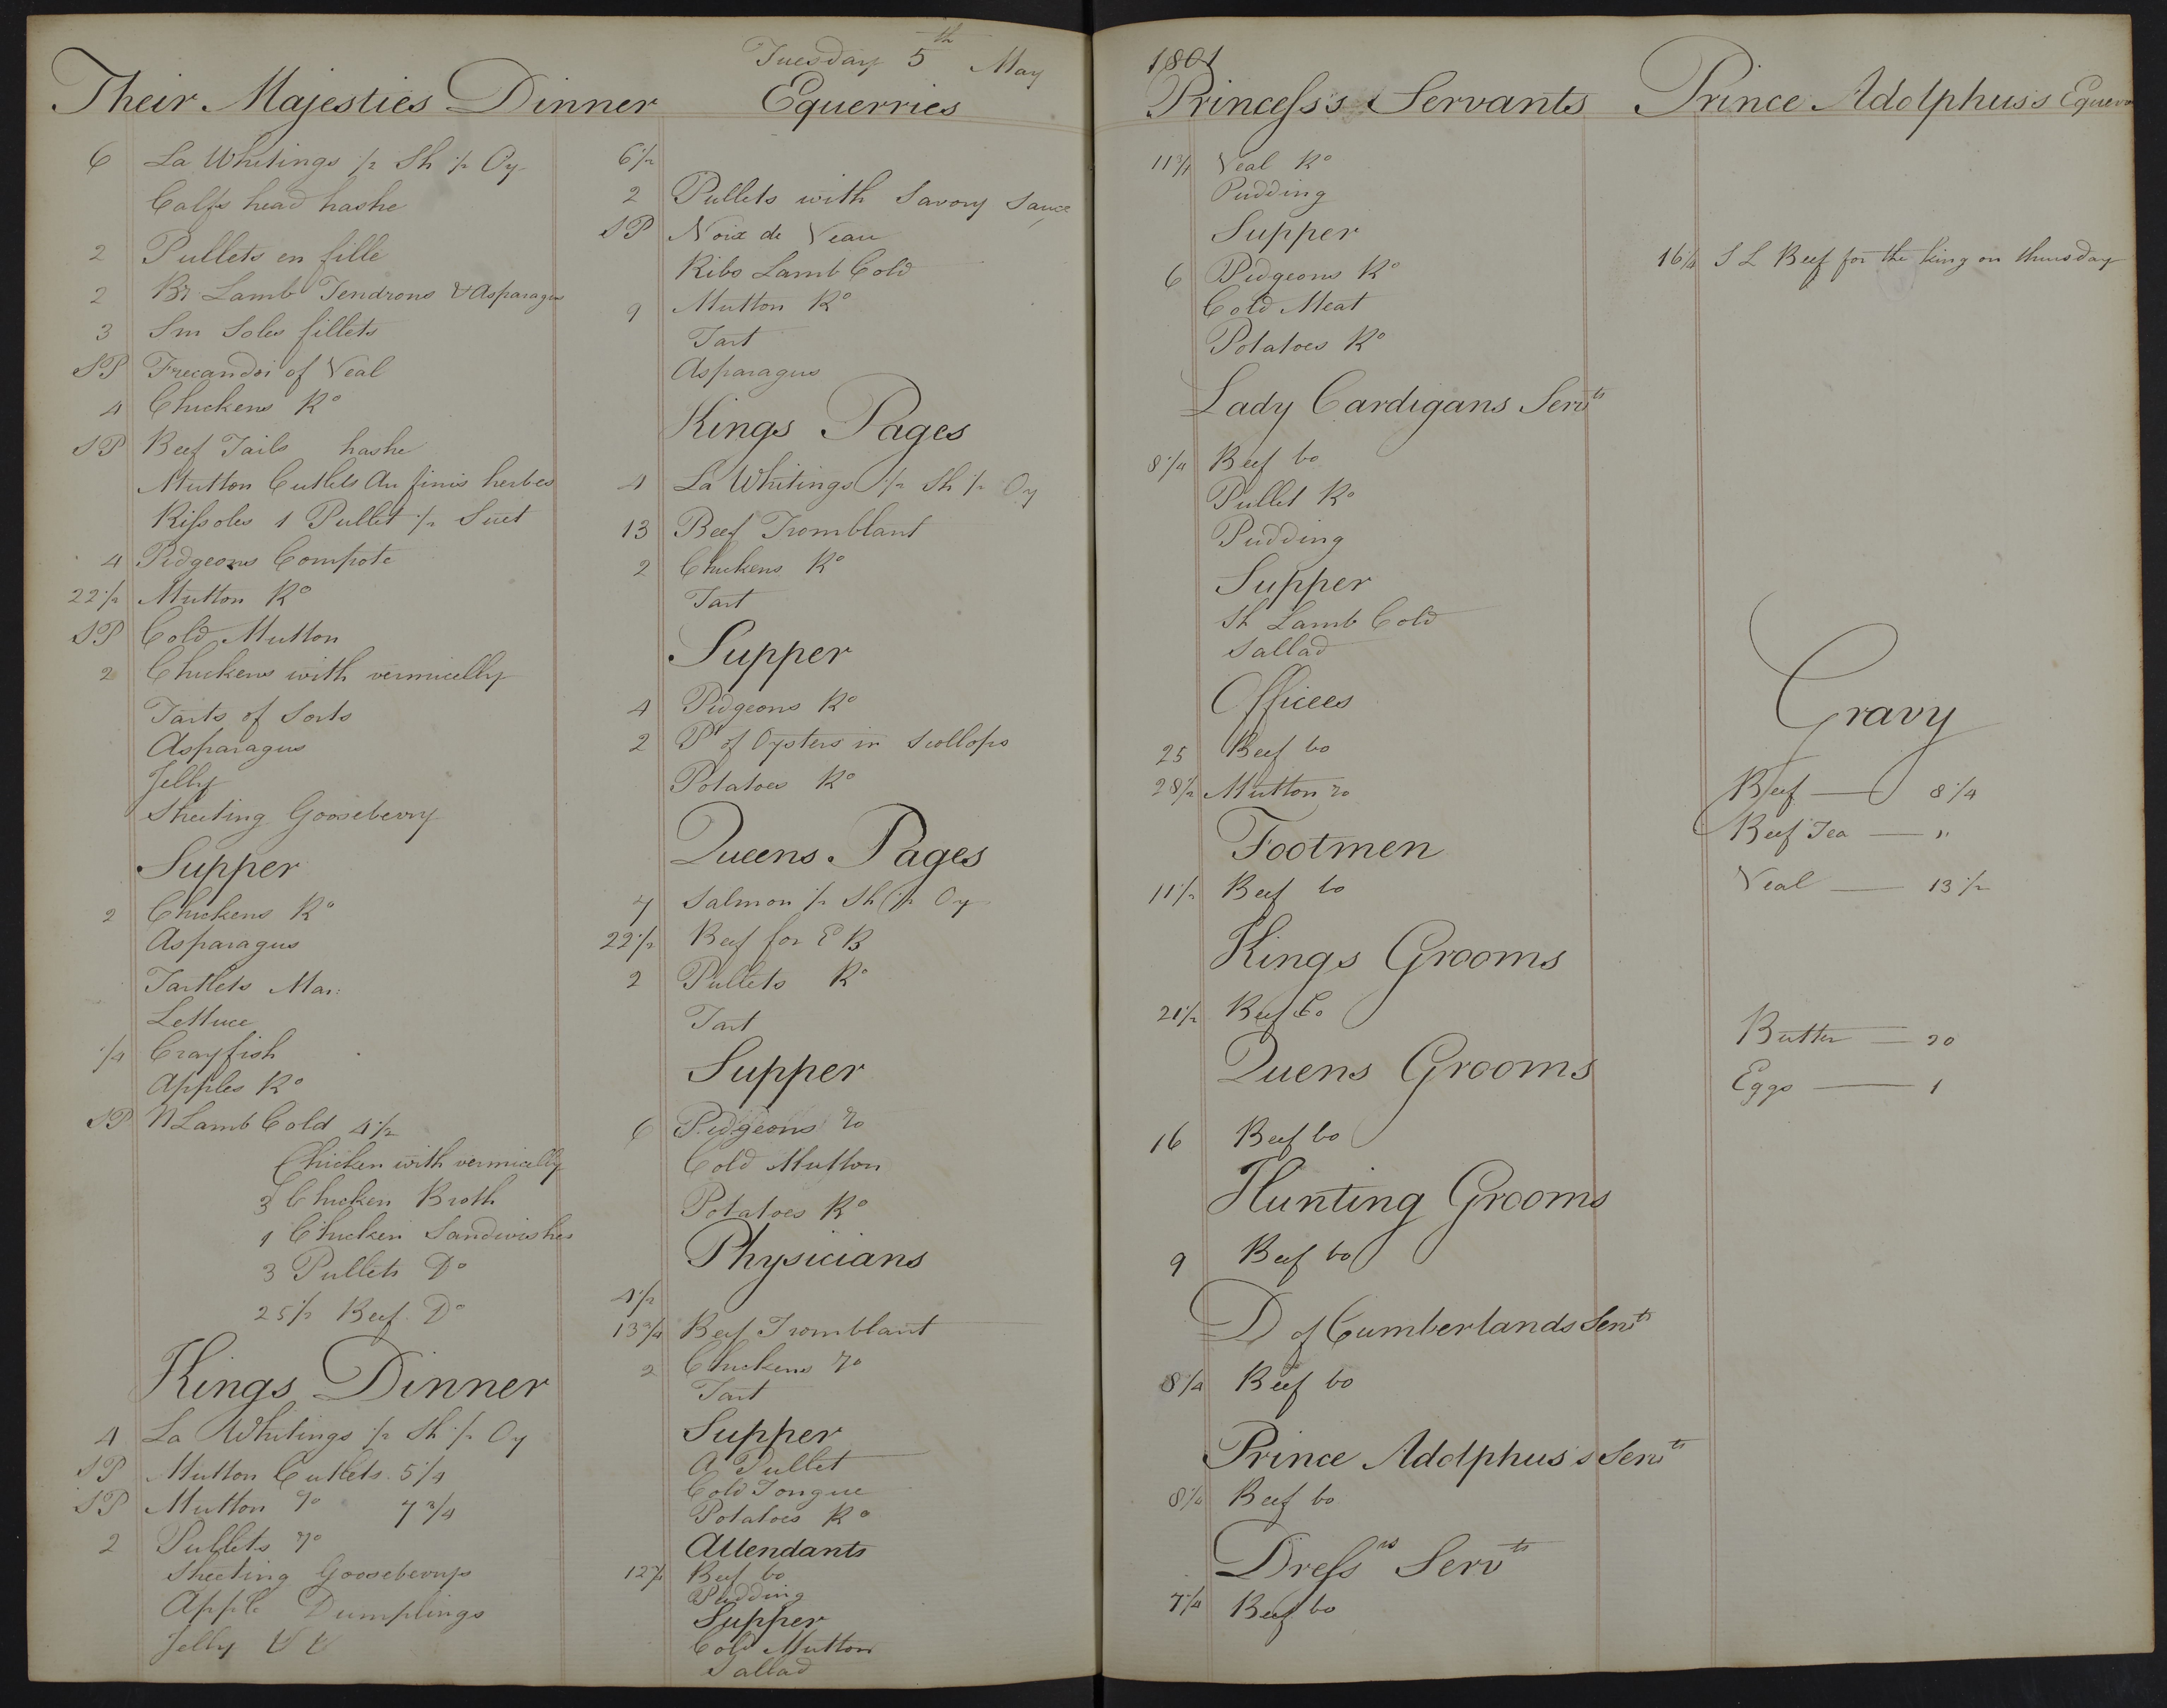 Tuesday 5th May
Their Majesties Dinner
6 La Whitings 1/2 Sh 1/2 Oy
Calfs head hashe
2 Pullets en fille
2 Br Lamb Tendrons & Asparagus
3 Sm Soles fillets
SP Frecandoi of Veal
4 Chickens Ro
SP Beef Tails hashe
Mutton Cutlets Au finis herbes
Rissoles 1 Pullet 1/2 Suet
4 Pidgeons Compote
22 1/2 Mutton Ro
SP Cold Mutton
2 Chickens with vermicelly
Tarts of Sorts
Asparagus
Jelly
Sheeting Gooseberry
Supper
2 Chickens Ro
Asparagus
Tartlets Mar:
Lettuce
1/4 Crayfish
Apples Ro
SP N Lamb Cold 4 1/2
Chicken with vermicelly
3 Chicken Broth
1 Chicken Sandwishes
3 Pullets Do
25 1/2 Beef Do
Kings Dinner
4 La Whitings 1/2 Sh 1/2 Oy
SP Mutton Cutlets 5 1/4
SP Mutton ro 7 3/4
2 Pullets ro
Sheeting Gooseberrys
Apple Dumplings
Jelly & &
Equerries
6 1/2
2 Pullets with Savory Sauce
SP Noix de Veau
Ribs Lamb Cold
9 Mutton Ro
Tart
Asparagus
Kings Pages
4 La Whitings 1/2 Sh 1/2 Oy
13 Beef Tromblant
2 Chickens Ro
Tart
Supper
4 Pidgeons Ro
2 Pt of Oysters in Scollops
Potatoes Ro
Queens Pages
7 Salmon 1/2 Sh 1/2 Oy
22 1/2 Beef for E B
2 Pullets Ro
Tart
Supper
6 Pidgeons ro
Cold Mutton
Potatoes Ro
Physicians
4 1/2
13 3/4 Beef Tromblant
2 Chickens ro
Tart
Supper
A Pullet
Cold Tongue
Potatoes Ro
Attendants
12 1/2 Beef bo
Pudding
Supper
Cold Mutton
Sallad
1801
Princess's Servants
11 3/4 Veal Ro
Pudding
Supper
6 Pidgeons Ro
Cold Meat
Potatoes Ro
Lady Cardigans Servts
8 1/4 Beef bo
Pullet Ro
Pudding
Supper
Sh Lamb Cold
Sallad
Officees
25 Beef bo
28 1/2 Mutton ro
Footmen
11 1/2 Beef bo
Kings Grooms
21 1/2 Beef bo
Quens Grooms
16 Beef bo
Hunting Grooms
9 Beef bo
D of Cumberlands Servts
8 1/4 Beef bo
Prince Adolphus's Servts
8 1/4 Beef bo
Dressrs Servts
7 1/4 Beef bo
Prince Adolphus's
16 1/4 S L Beef for the king on thursday
Gravy
Beef — 8 1/4
Beef Tea — "
Veal — 13 1/2
Butter — 20
Eggs — 1